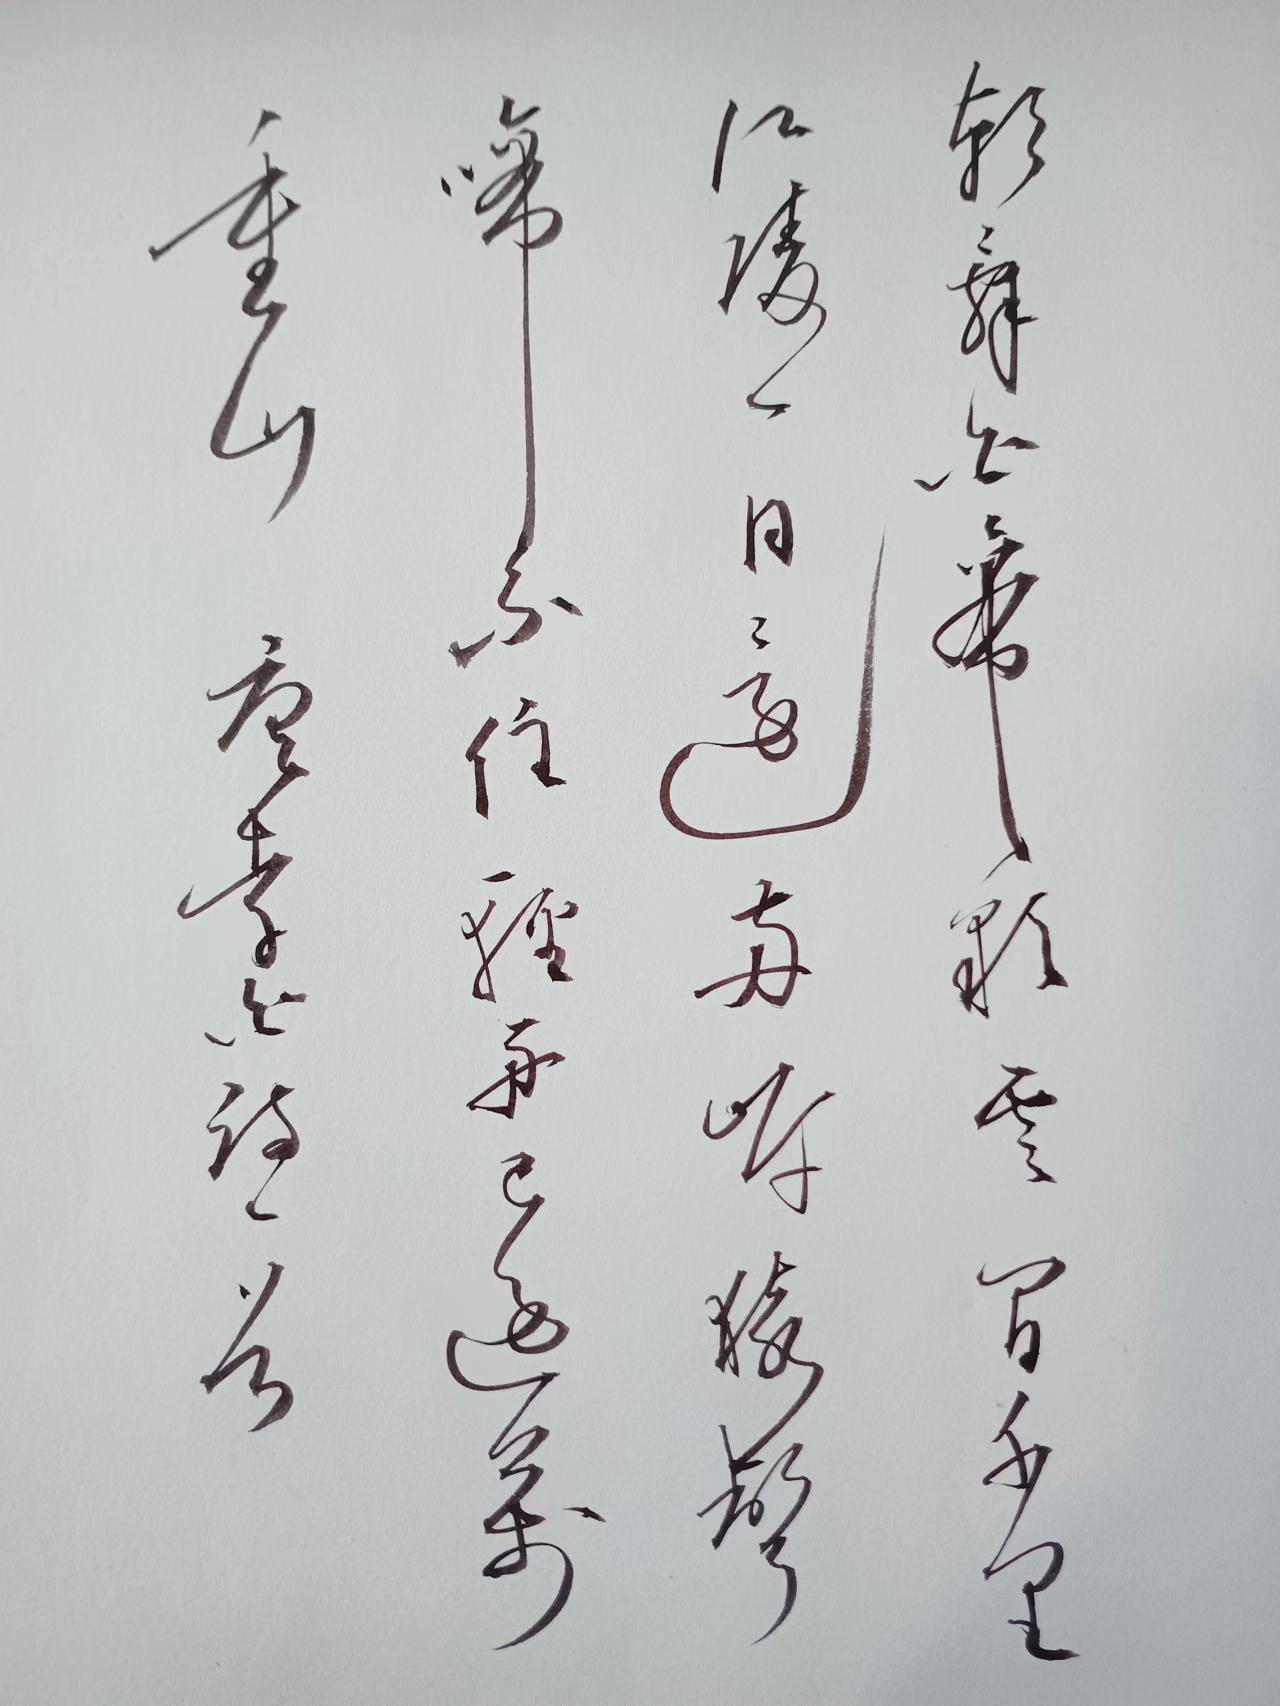 朝辭白帝彩雲間千里
江陵一日還兩岸猿聲
啼不住輕舟已過萬
重山 唐李白詩一首